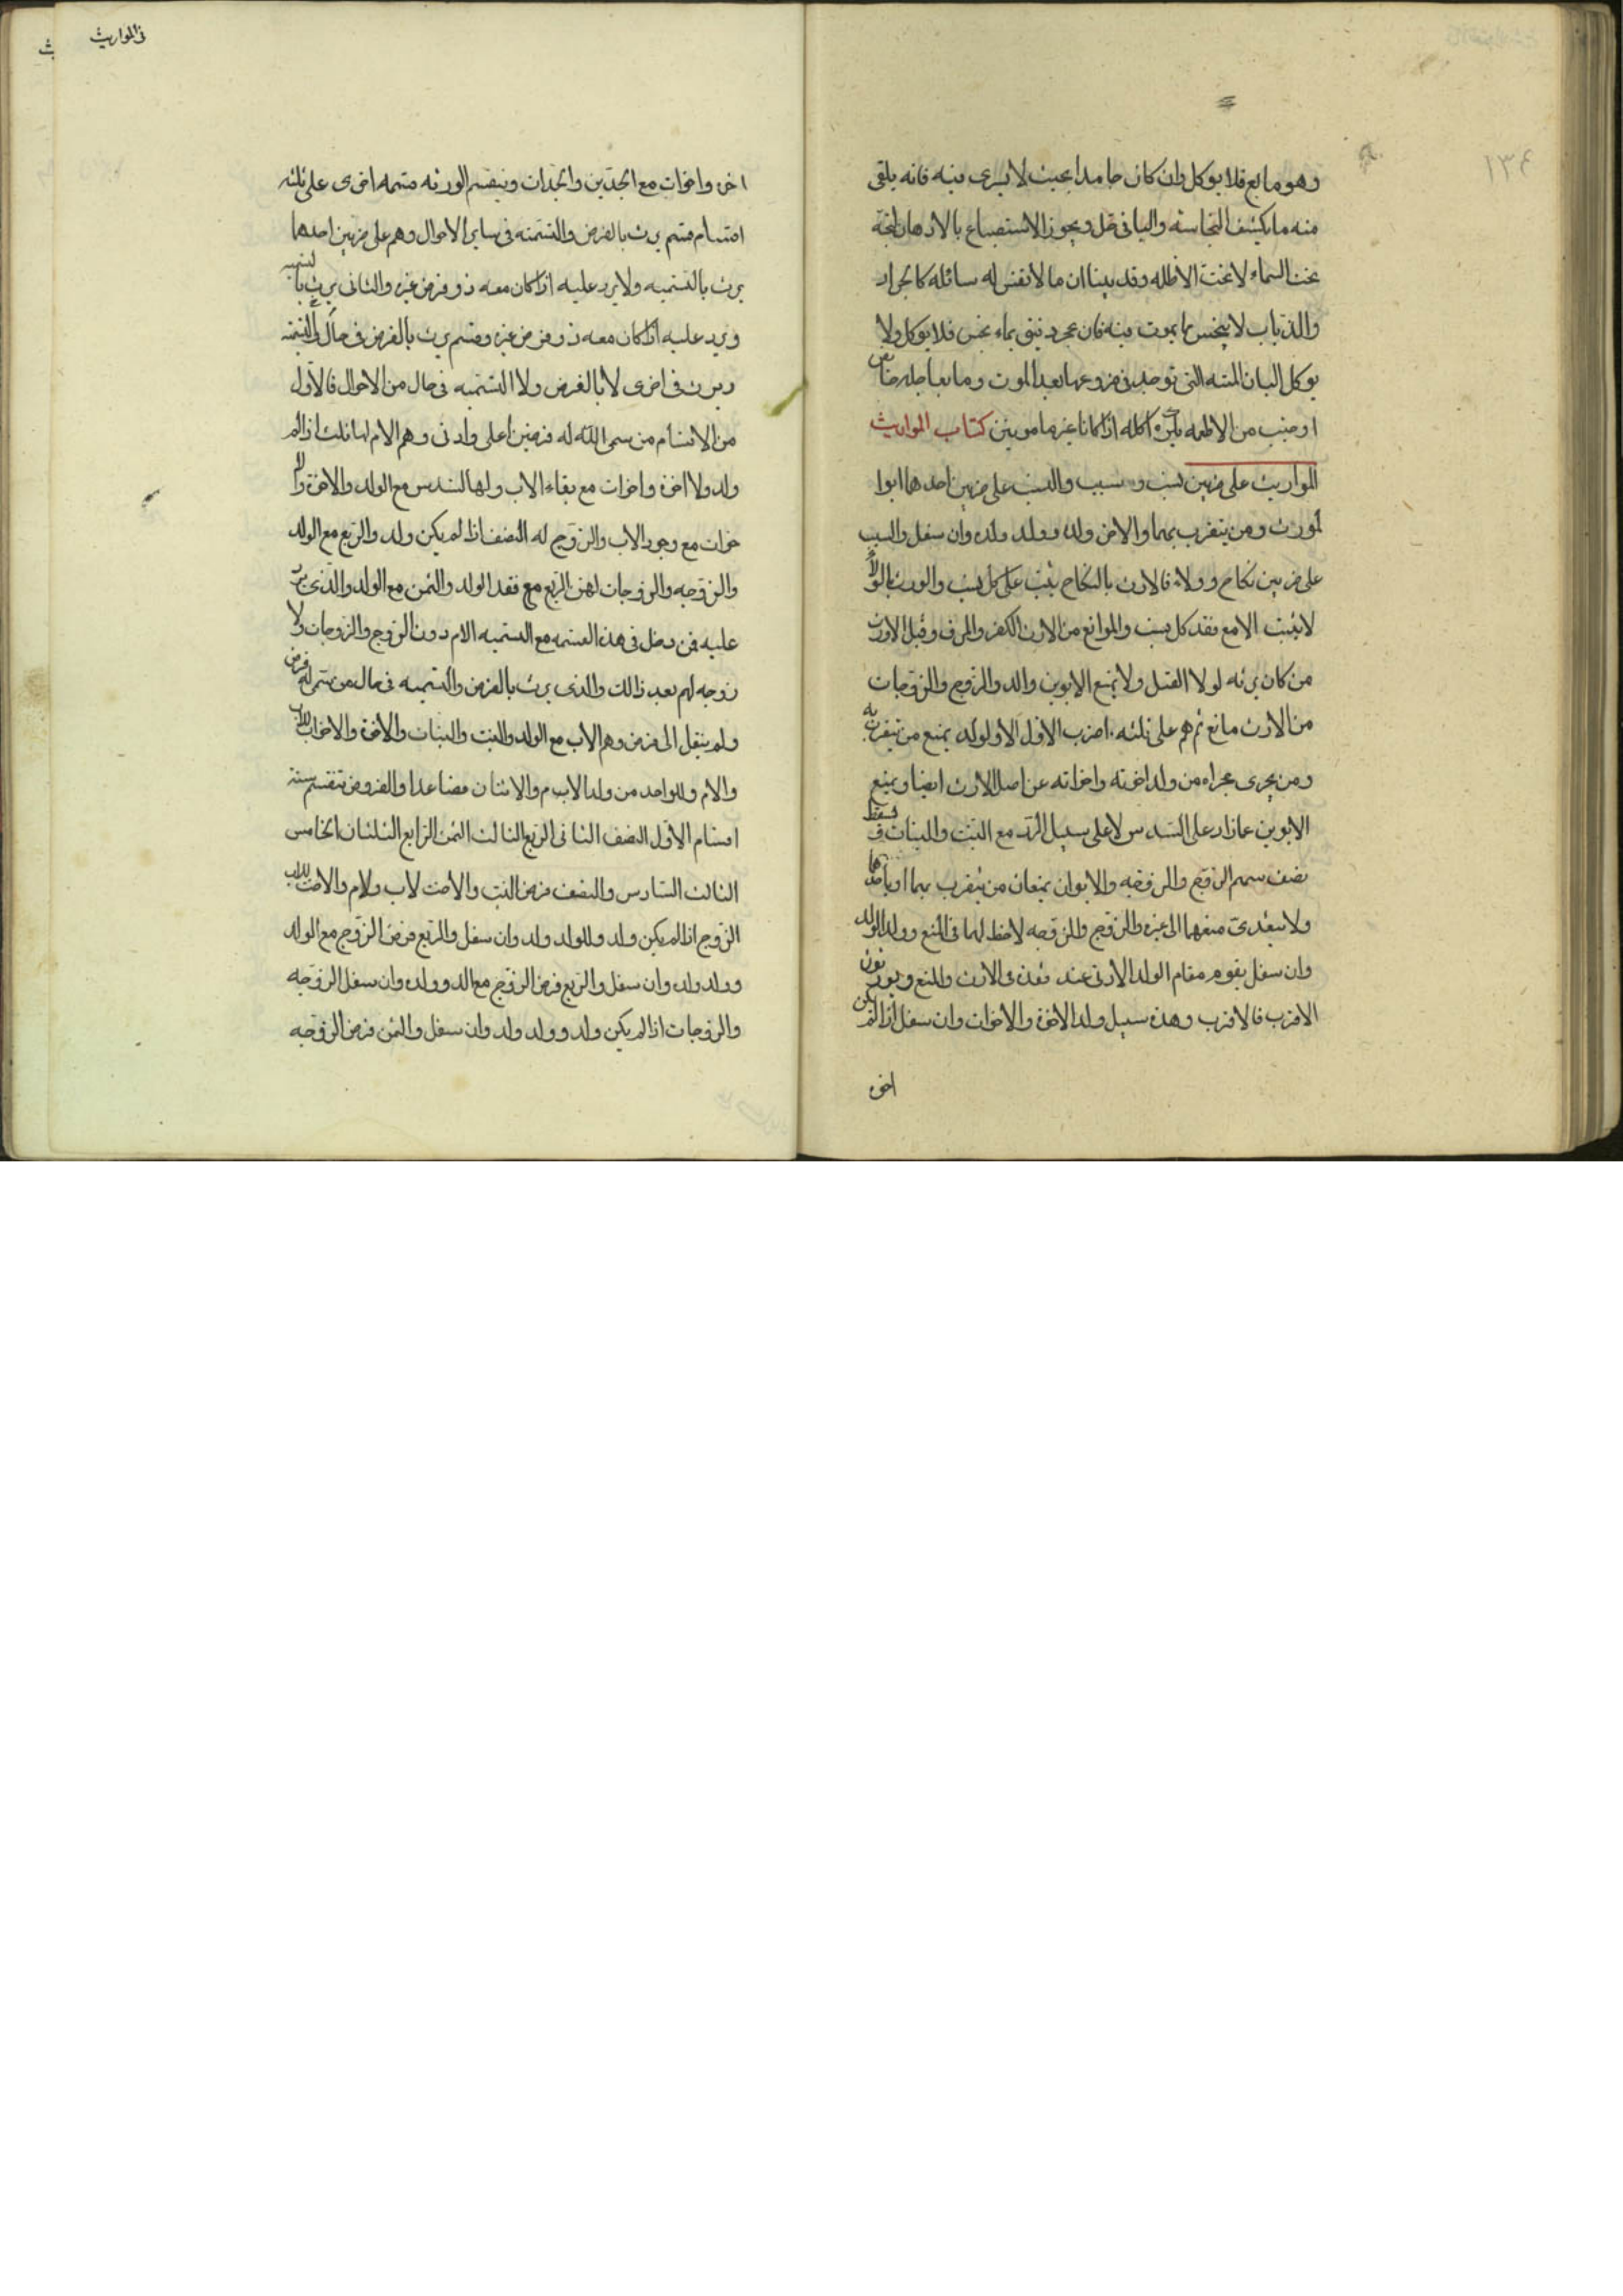 ١٣٤
وهو مايع فلا يوكل وان كان جامدا بحيث لا يسرى فيه فانه يلقى
منه ما يكتنف النجاسته والباقى حل ويجوز الاستصباح بالادهان النجسة
تحت السماء لا تحت الاظله وقد بينا ان ما لا نفس له سائله كالجراد
والذباب لا ينجس بما يموت فيه فان عجن دقيق بماء نجس فلا يوكل ولا
يوكل البان الميته التى توجد فى ضروعها بعد الموت وما يعاجله حائض
او جنب من الاطعمه يكره اكله اذا كانا غير مامونين كتاب المواريث
المواريث على ضربين نسب وسبب والنسب على ضربين احدهما ابوا
لمورث ومن يتقرب بهما والاخر ولده وولد ولده وان سفل والسبب
على ضربين نكاح وولاء فالارث بالنكاح يثبت على كل نسب والورث بالولاء
لا يثبت الا مع فقد كل نسب والموانع من الارث الكفر والرق وقتل الوارث
من كان يرثه لولا القتل ولا يمنع الابوين والد والزوج والزوجات
من الارث مانع ثم هم على ثلثه اضرب الاول الاولولد يمنع من يتقرب به
ومن يجرى مجراه من ولد اخوته واخواته عن اصل الارث ايضا ويمنع
الابوين عما زاد على السدس لا على سبيل الرد مع البنت والبنات فسقط
نصف سهم الزوج والزوجه والابوان يمنعان من يتقرب بهما او باحدهما
ولا يتعدى منعهما الى غيره والزوج والزوجه لاحظ لهما فى المنع وولد الولد
وان سفل يقوم مقام الولد الادنى عند فقده فى الارث والمنع ويورثون
الاقرب فالاقرب وهذه سبيل ولد الاخوة والاخوات وان سفل اذا لم يكن
اخوه
فى المواريث
اخوه واخوات مع الجدين والجدات وينقسم الورثه قسمه اخرى على ثلثه
اقسام قسم يرث بالفرض والتسميه فى ساير الاحوال وهم على ضربين احدهما
يرث بالتسميه ولا يرد عليه اذا كان معه ذو فرض غيره والثانى يرث بالتسميه
ويرد عليه اذا كان معه ذو فرض غيره وقسم يرث بالفرض فى حال والتسميه
ويرث فى اخرى لا بالفرض ولا التسميه فى حال من الاحوال فالاول
من الاقسام من سمى الله له فرضين اعلى وادنى وهم الام لها ثلث اذا لم
ولد ولا اخوة واخوات مع بقاء الاب ولها السدس مع الولد والاخوة والا
خوات مع وجود الاب والزوج له النصف اذا لم يكن ولد والربع مع الولد
والزوجه والزوجات لهن الربع مع فقد الولد والثمن مع الولد والذى يرد
عليه من دخل فى هذه القسمه مع التسميه الام دون الزوج والزوجات ولا
زوجه لهم بعد ذالك والذى يرث بالفرض والتسميه فى حال من سمى له فرض
ولم ينقل الى فرض وهم الاب مع الولد والبنت والبنات والاخوة والاخوات للاب
والام وللواحد من ولد الام والاثنان فصاعدا والفروض تنقسم ستة
اقسام الاول النصف الثانى الربع الثالث الثمن الرابع الثلثان الخامس
الثالث السادس والنصف فرض البنت والاخت لاب ولام والاخت للاب
الزوج اذا لم يكن ولد وللولد ولد وان سفل والربع فرض الزوج مع الولد
وولد ولد وان سفل والربع فرض الزوج مع الد وولده وان سفل الزوجه
والزوجات اذا لم يكن ولد وولد ولد وان سفل والثمن فرض الزوجه